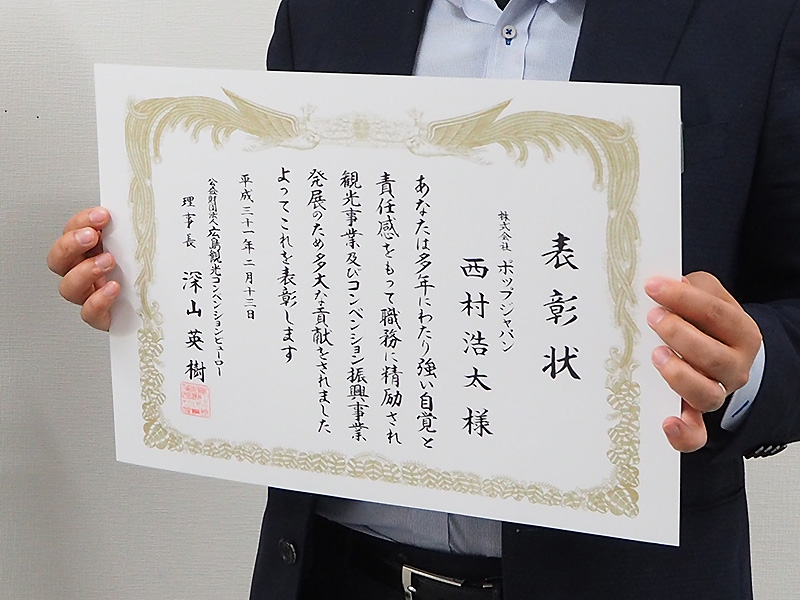 表彰状
株式会社 ポップジャパン
西村浩太様
あなたは多年にわたり強い自覚と
責任感をもって職務に精励され
観光事業及びコンベンション振興事業
発展のため多大な貢献をされました
よってこれを表彰します
平成三十一年二月十三日
公益財団法人広島観光コンベンションビューロー
理事長 深山英樹